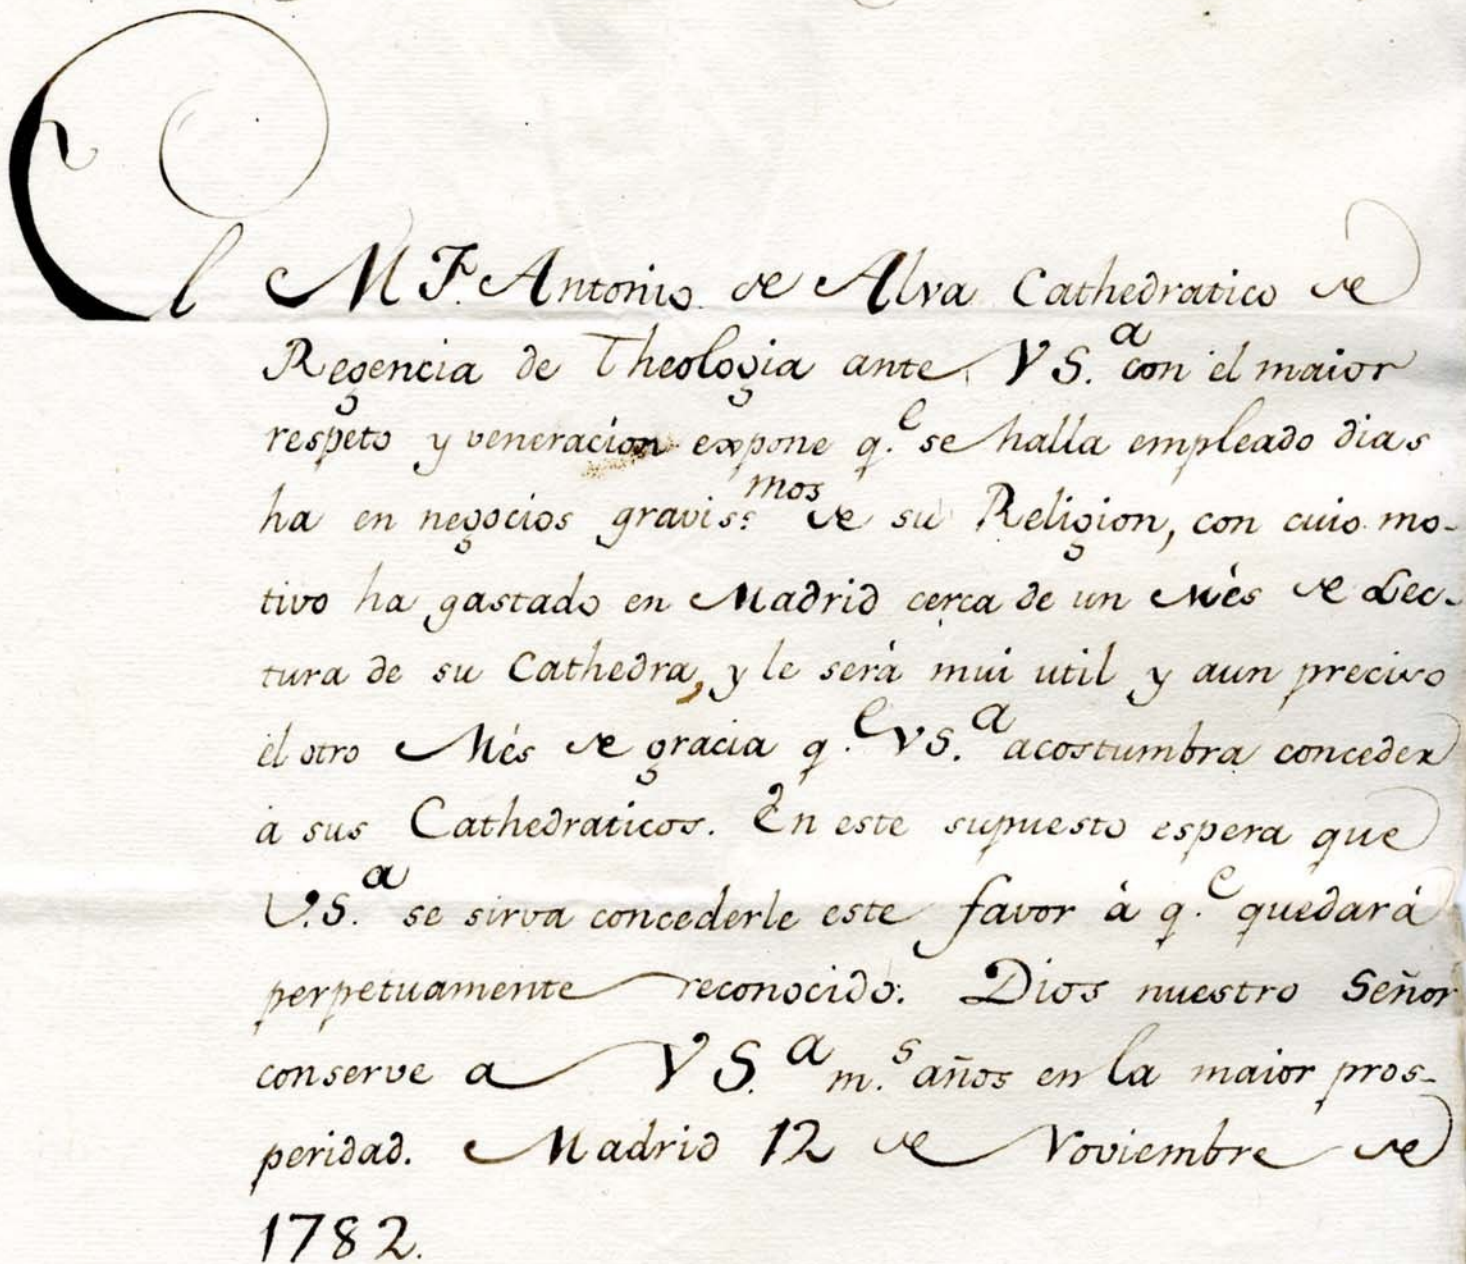 El M F. Antonio de Alva Cathedratico de
Regencia de Theologia ante VS.ª con el maior
respeto y veneracion expone q.e se halla empleado dias
ha en negocios graviss.mos de su Religion, con cuio mo-
tivo ha gastado en Madrid cerca de un Mès de Lec-
tura de su Cathedra, y le serà mui util y aun preciso
el otro Mès de gracia q.e VS.ª acostumbra conceder
a sus Cathedraticos. En este supuesto espera que
V.S.ª se sirva concederle este favor à q.e quedarà
perpetuamente reconocido. Dios nuestro Señor
conserve a VS.ª m.s años en la maior pros-
peridad. Madrid 12 de Noviembre de
1782.